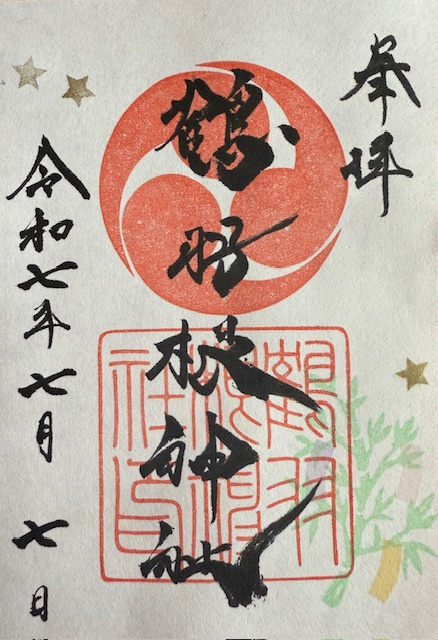 奉拝
鶴羽根神社
令和七年七月七日
鶴羽
根神
社印